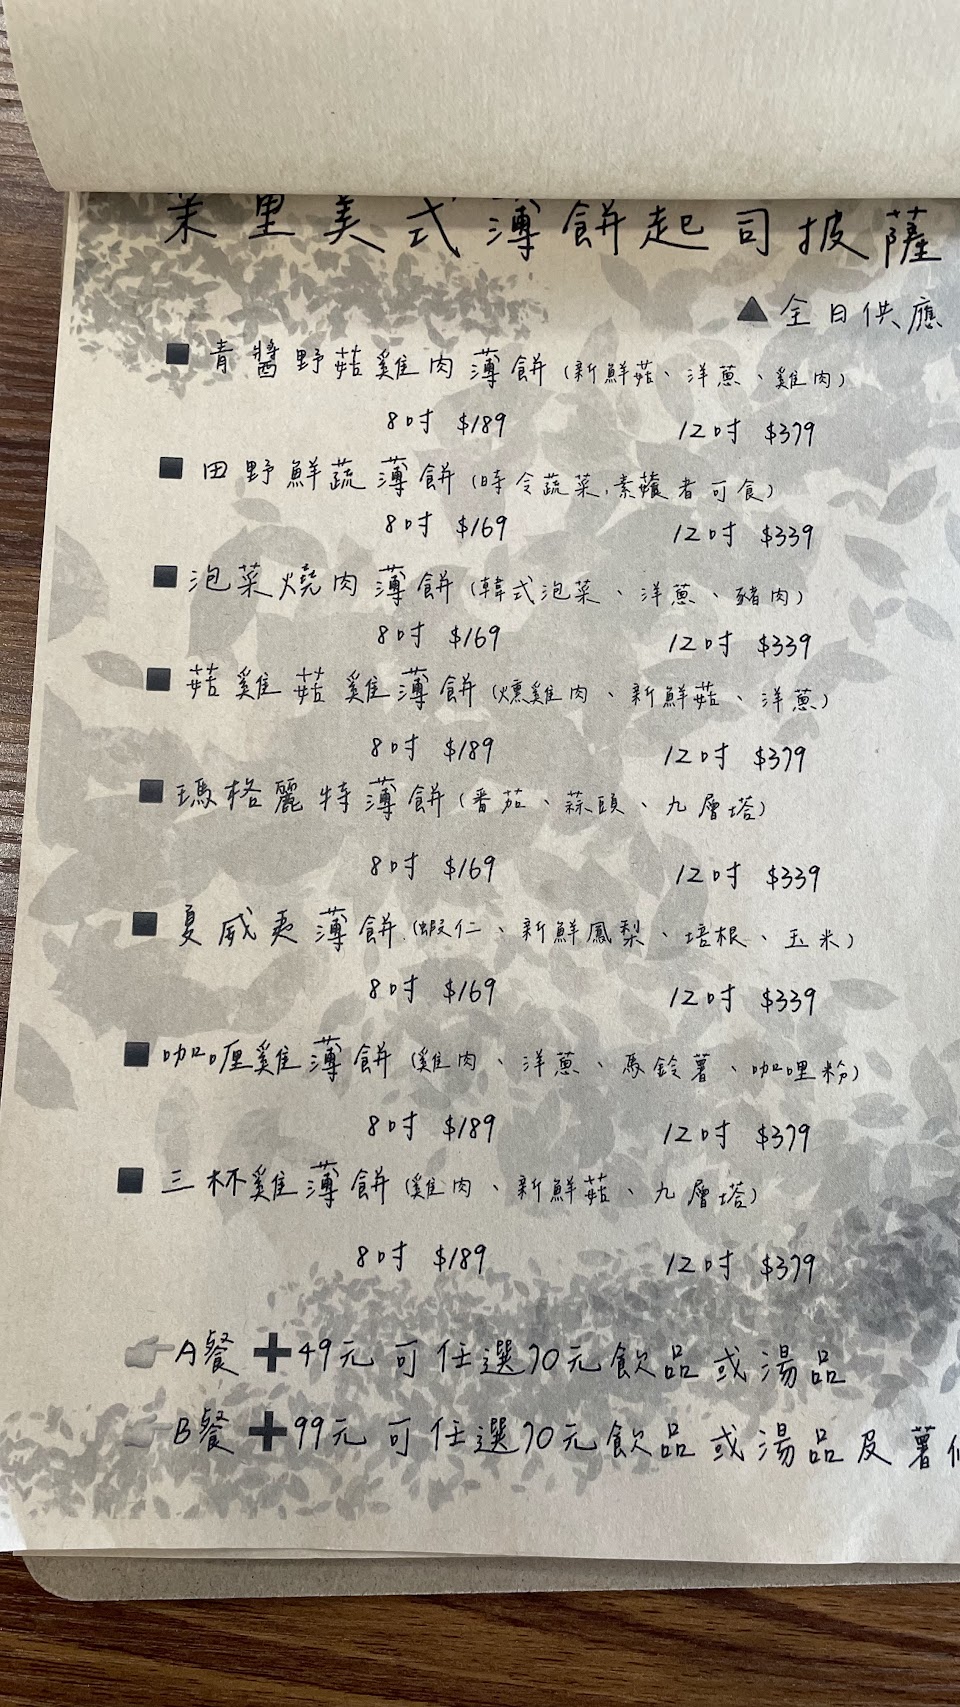 茉里美式薄餅起司披薩
▲全日供應
■青醬野菇雞肉薄餅(新鮮菇、洋蔥、雞肉)
8吋 $189 12吋 $379
■田野鮮蔬薄餅(時令蔬菜,素食者可食)
8吋 $169 12吋 $339
■泡菜燒肉薄餅(韓式泡菜、洋蔥、豬肉)
8吋 $169 12吋 $339
■菇雞菇雞薄餅(燻雞肉、新鮮菇、洋蔥)
8吋 $189 12吋 $379
■瑪格麗特薄餅(番茄、蒜頭、九層塔)
8吋 $169 12吋 $339
■夏威夷薄餅(蝦仁、新鮮鳳梨、培根、玉米)
8吋 $169 12吋 $339
■咖喱雞薄餅(雞肉、洋蔥、馬鈴薯、咖哩粉)
8吋 $189 12吋 $379
■三杯雞薄餅(雞肉、新鮮菇、九層塔)
8吋 $189 12吋 $379
A餐+49元可任選70元飲品或湯品
B餐+99元可任選70元飲品或湯品及薯